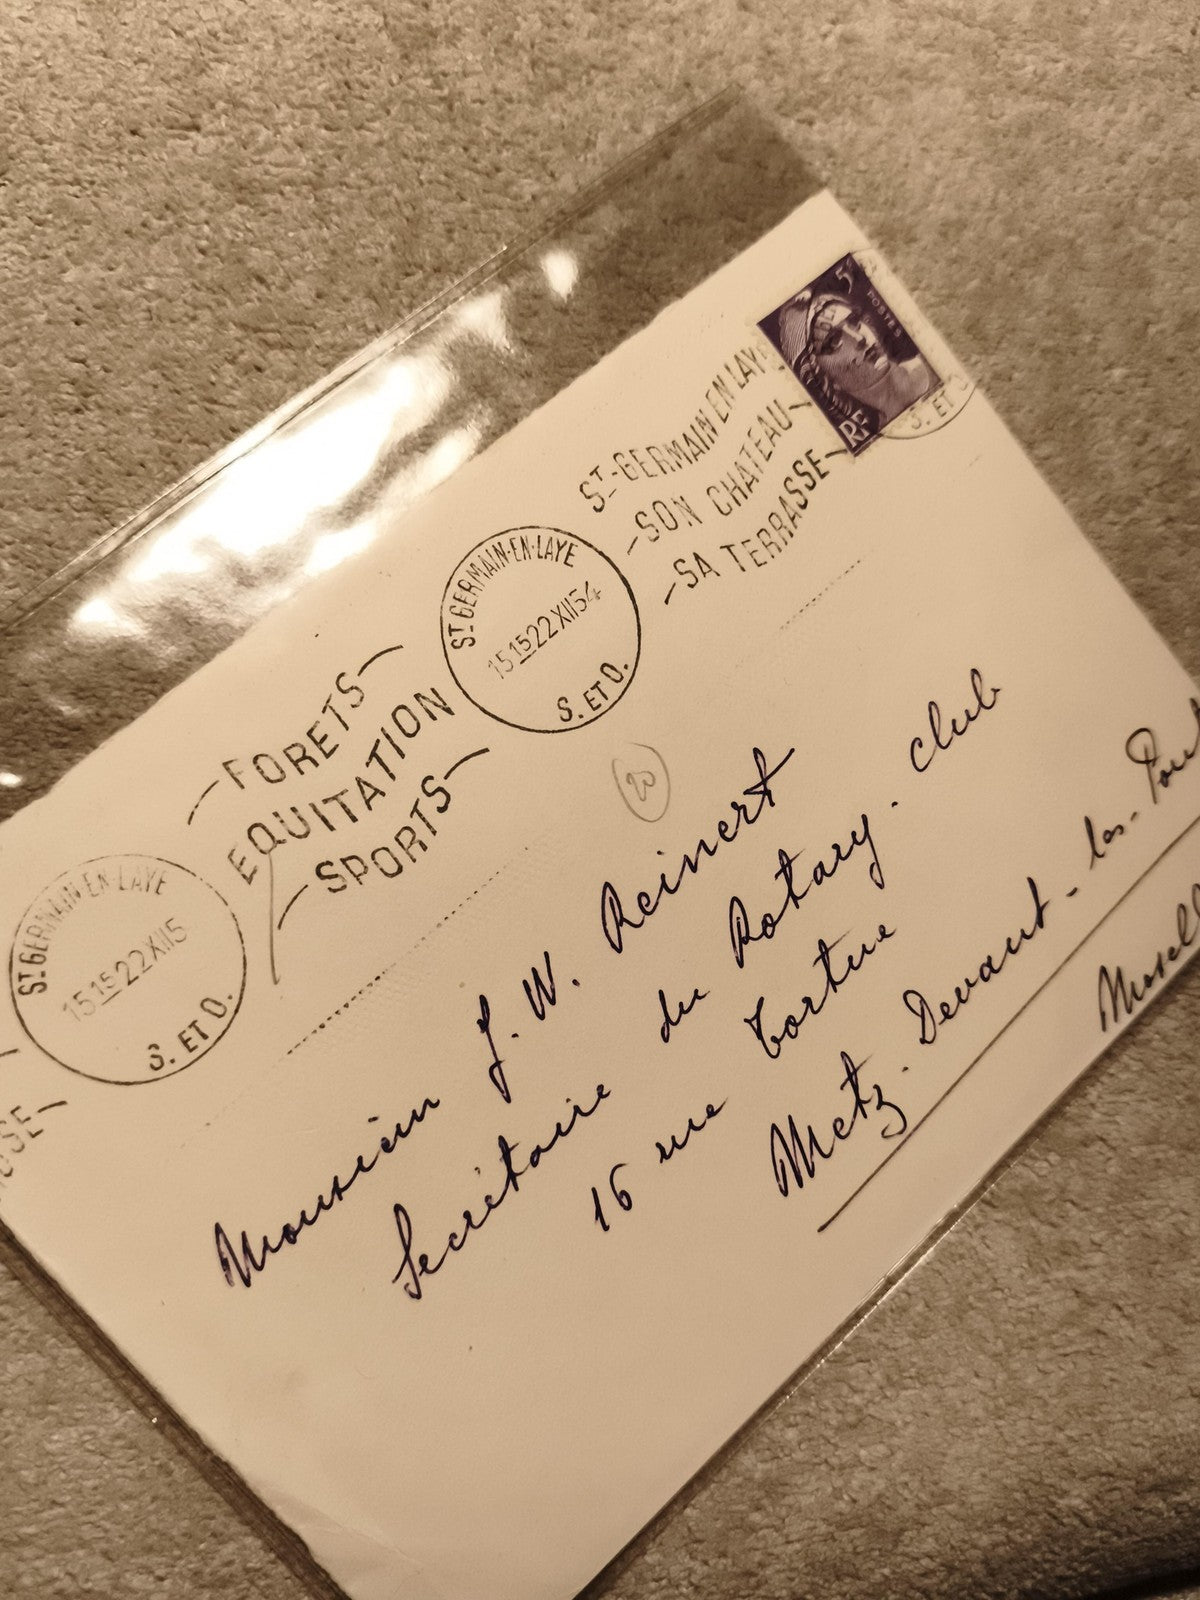 5F
POSTES
RF
S. ET O.
ST-GERMAIN EN LAYE
-SON CHATEAU-
-SA TERRASSE-
ST GERMAIN-EN-LAYE
15 15 22 XII 54
S. ET O.
-FORETS-
EQUITATION
-SPORTS-
ST GERMAIN-EN-LAYE
15 15 22 XII 5
S. ET O.
20
Monsieur J. W. Reinert
Secrétaire du Rotary-club
16 rue Tortue
Metz. Devant-les-Pont
Mosell